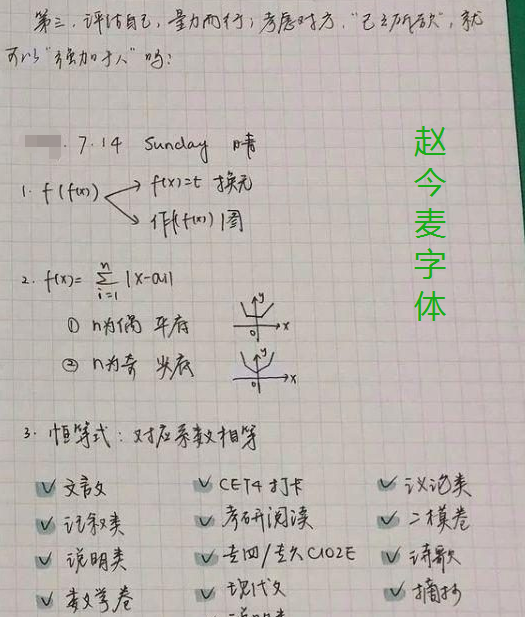 第三，评估自己，量力而行；考虑对方，“己之所欲”，就
可以“强加于人”吗？
7.14 Sunday 晴
1. f(f(x)) f(x)=t 换元
作|f(x)|图
2. f(x)= n∑i=1 |x-ai|
① n为偶 平底
y x 0
② n为奇 尖底
y x 0
3. 恒等式：对应系数相等
文言文 CET4打卡 议论类
记叙类 考研阅读 二模卷
说明类 专四/专八CLOZE 诗歌
数学卷 现代文 摘抄
赵今麦字体